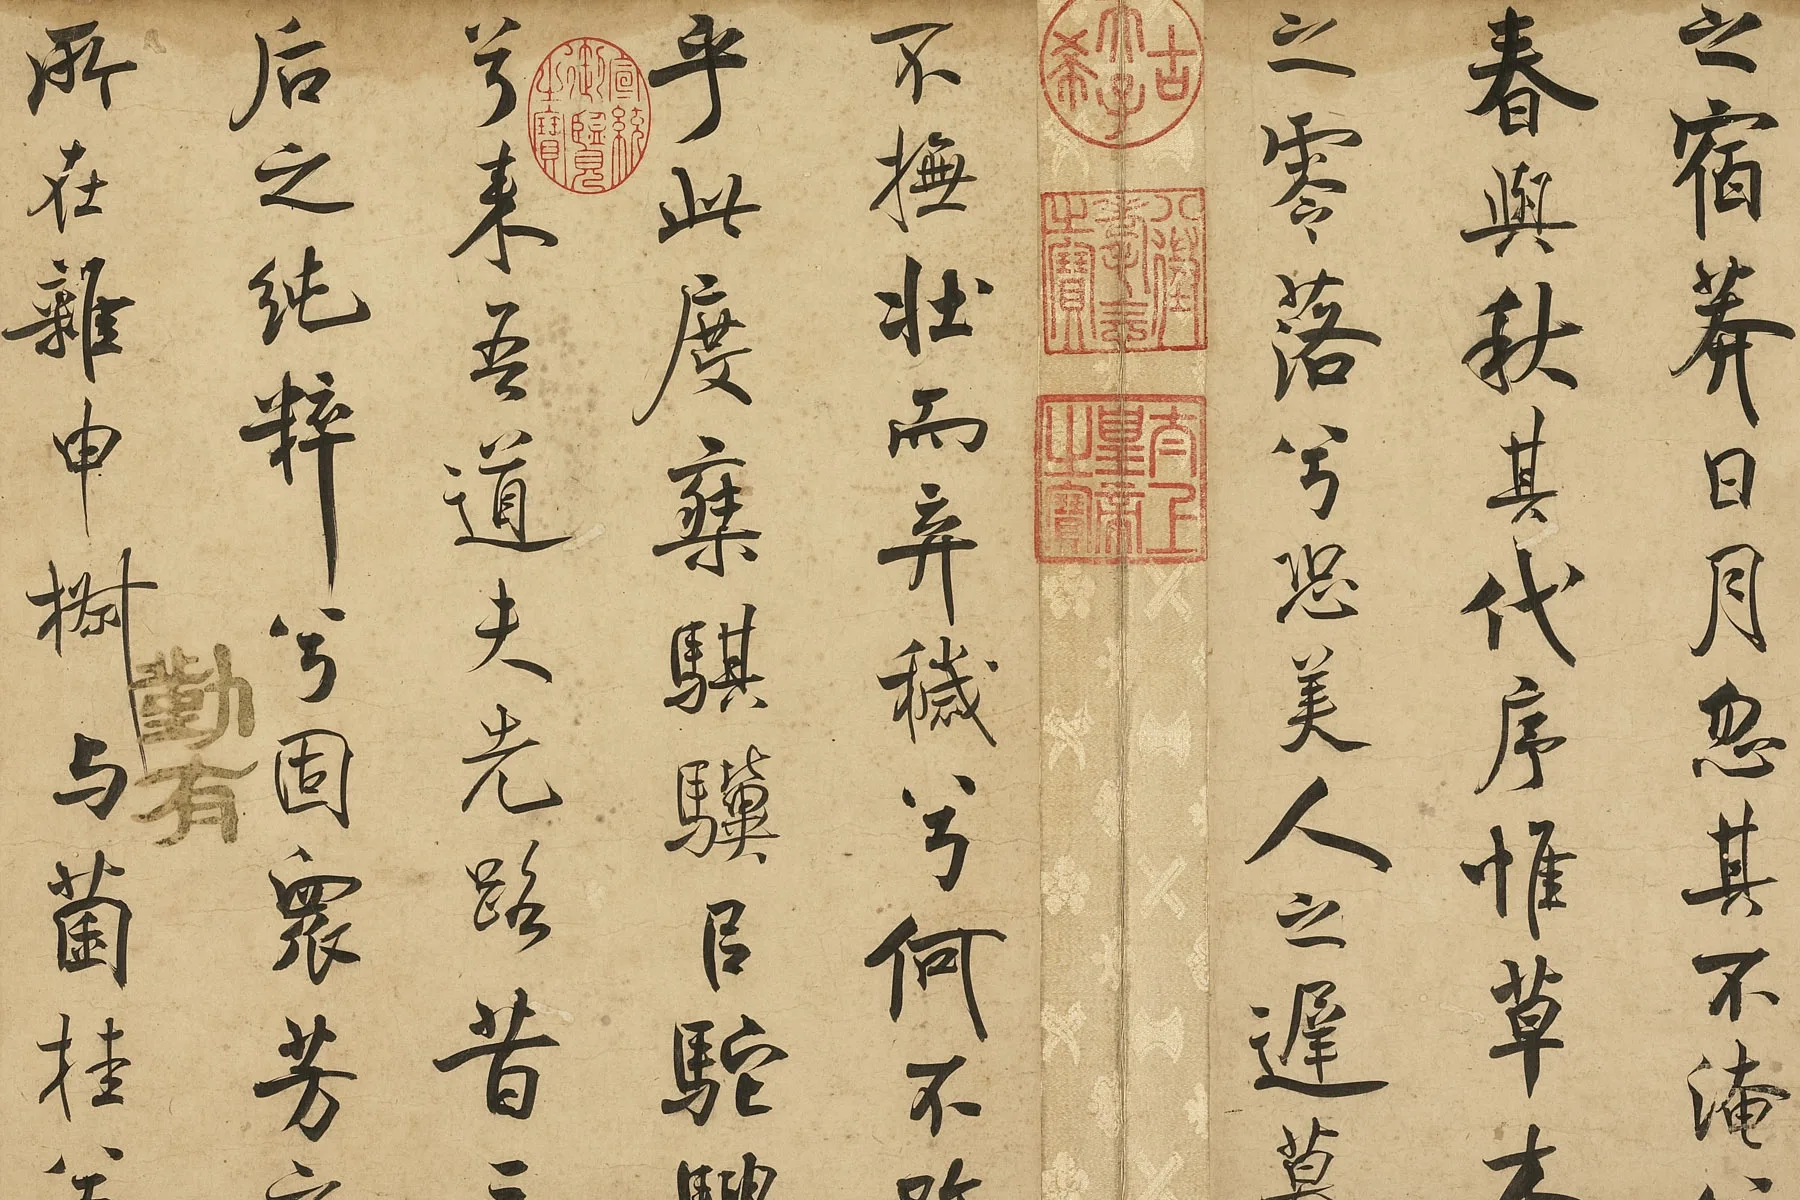 之宿莽日月忽其不淹兮
春與秋其代序惟草木
之零落兮恐美人之遲莫
古希天子
八徵耄念之寶
太上皇帝之寶
不撫壯而弃穢兮何不改
乎此度椉騏驥㠯駝騁
宣統御覽之寶
兮来吾道夫先路昔三
后之純粹兮固衆芳之
勤有
所在雜申椒与菌桂兮